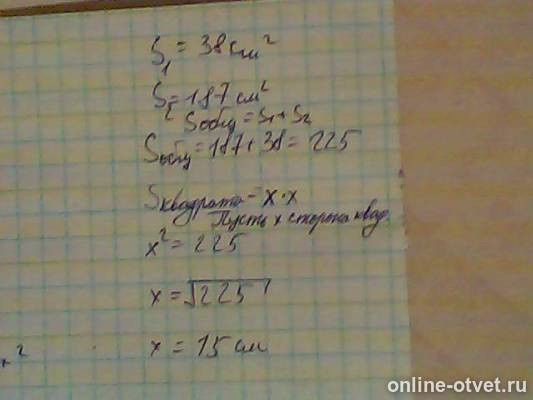 S₁ = 38 см²
S₂ = 187 см²
Sобщ = S₁ + S₂
Sобщ = 187 + 38 = 225
Sквадрата = x · x
Пусть x сторона квад.
x² = 225
x = √225
x = 15 см
²
online-otvet.ru